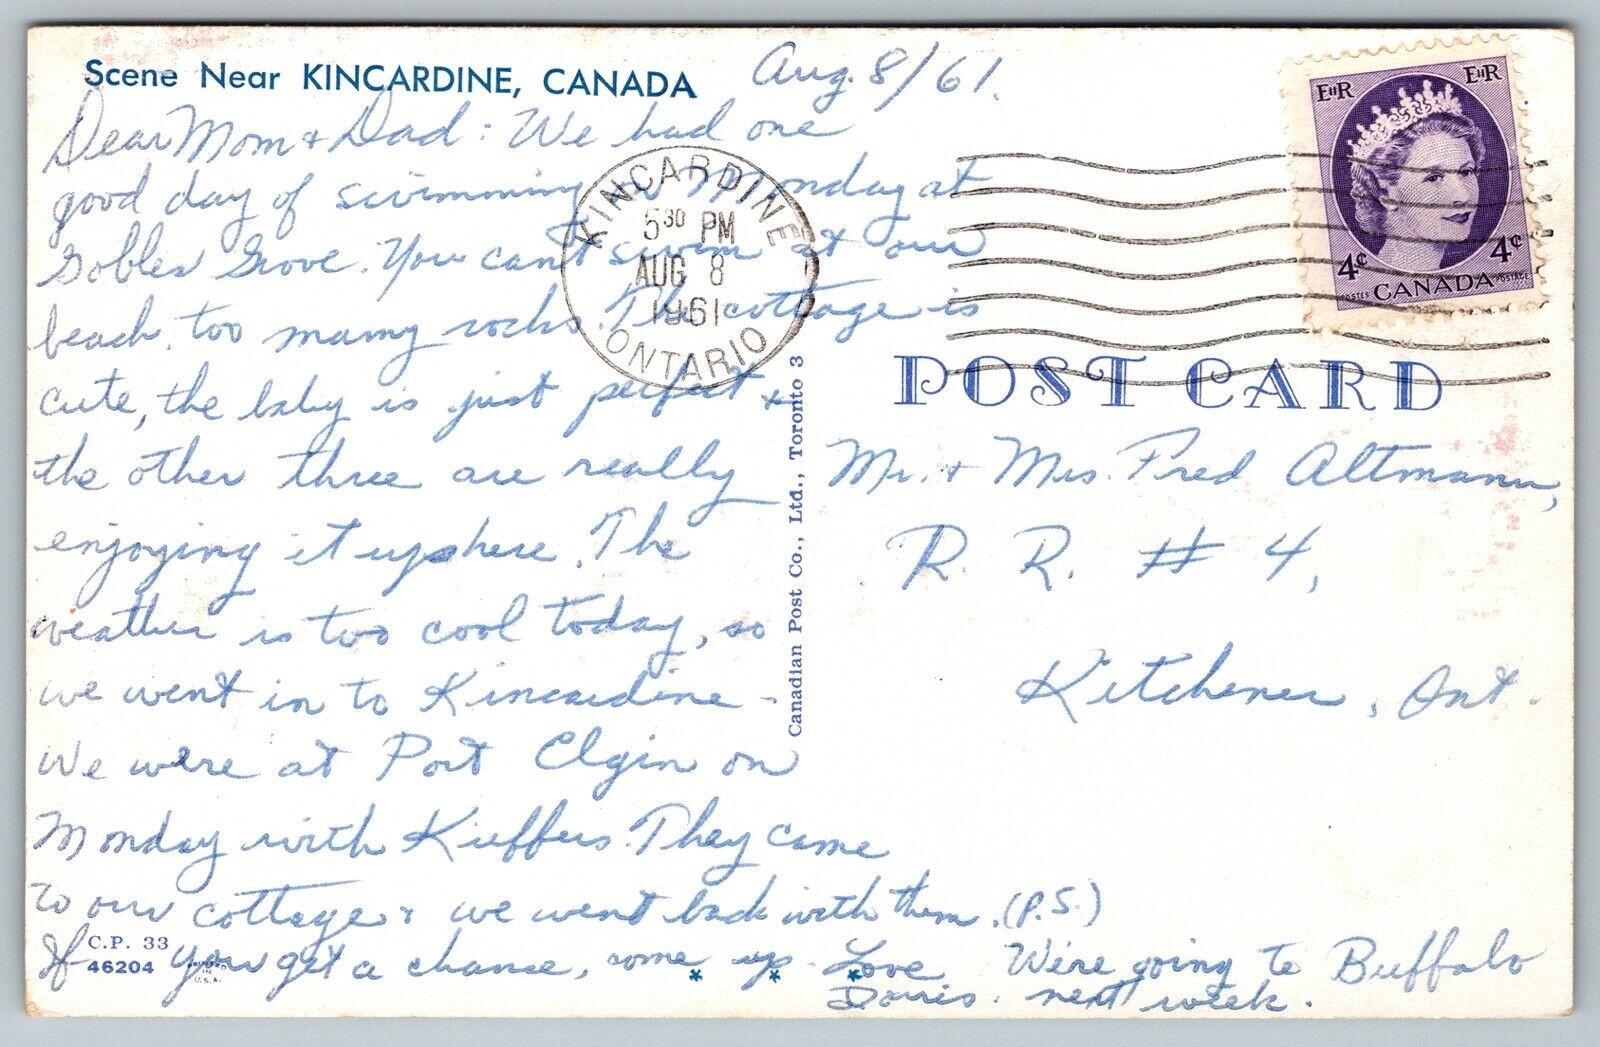 Scene Near KINCARDINE, CANADA
Aug. 8/61.
Dear Mom & Dad: We had one
good day of swimming on Monday at
Gobles Grove. You can't swim at our
beach, too many rocks. The cottage is
cute, the baby is just perfect &
the other three are really
enjoying it up here. The
weather is too cool today, so
we went in to Kincardine -
We were at Port Elgin on
Monday with Kieffers. They came
to our cottage & we went back with them.
If you get a chance, come up. Love
Dorris.
(P.S.)
We're going to Buffalo
next week.
C.P. 33
46204
IN
U.S.A.
* * *
KINCARDINE
5 30 PM
AUG 8
1961
ONTARIO
EIIR EIIR
4¢ 4¢
POSTES CANADA POSTAGE
Canadian Post Co., Ltd., Toronto 3
POST CARD
Mr. & Mrs. Fred Altmann,
R. R. # 4,
Kitchener, Ont.